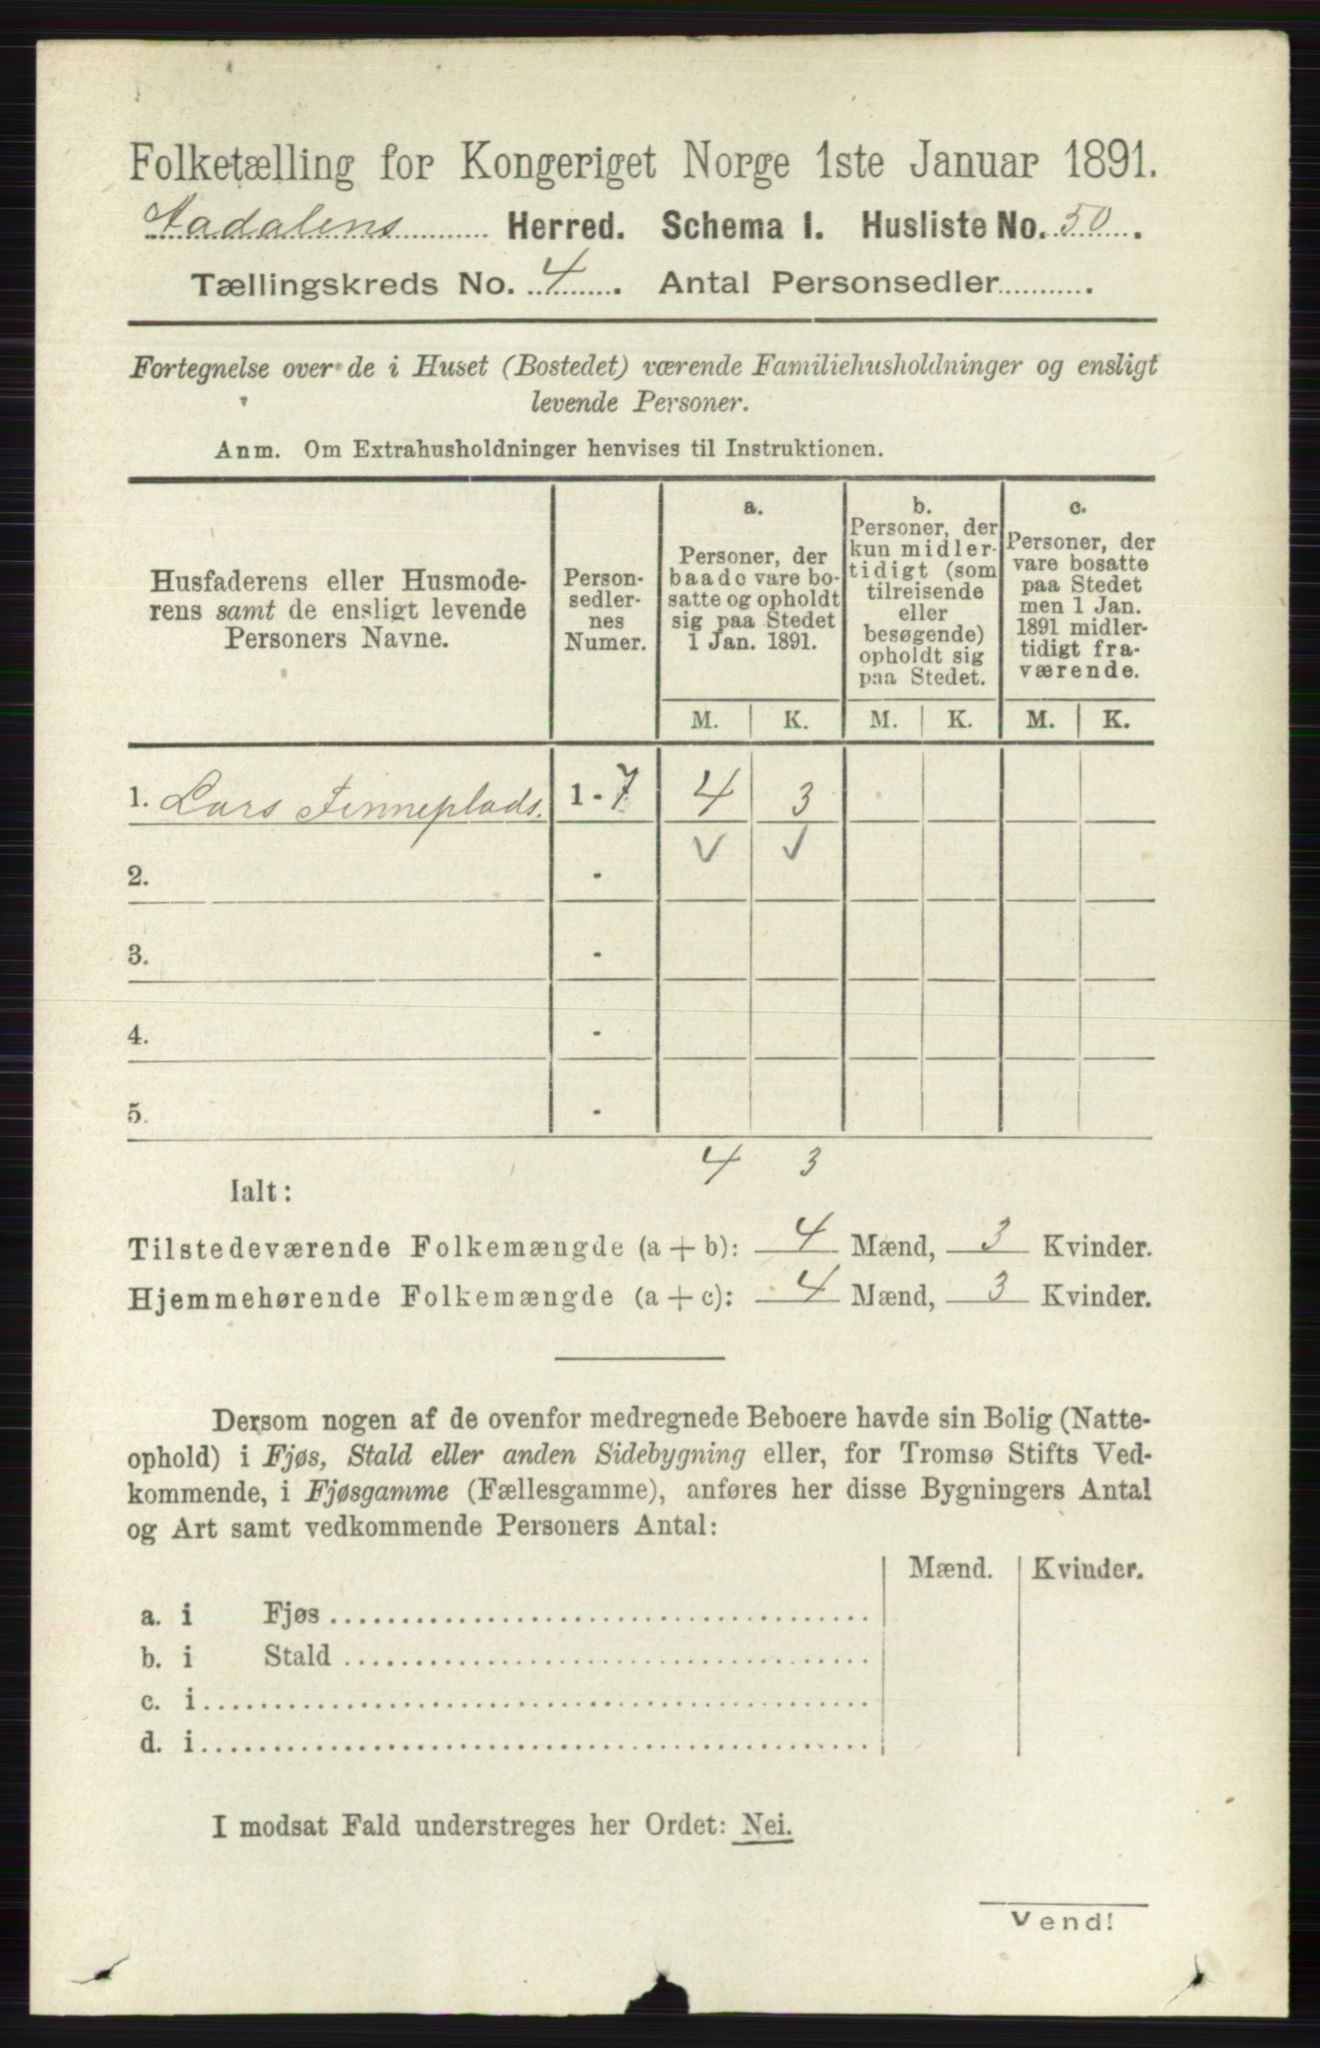 Folketælling for Kongeriget Norge 1ste Januar 1891.
Aadalens Herred. Schema I. Husliste No. 50.
Tællingskreds No. 4. Antal Personsedler
Fortegnelse over de i Huset (Bostedet) værende Familiehusholdninger og ensligt
levende Personer.
Anm. Om Extrahusholdninger henvises til Instruktionen.
Husfaderens eller Husmode-
rens samt de ensligt levende
Personers Navne.
Person-
sedler-
nes
Numer.
a.
Personer, der
baade vare bo-
satte og opholdt
sig paa Stedet
1 Jan. 1891.
b.
Personer, der
kun midler-
tidigt (som
tilreisende
eller
besøgende)
opholdt sig
paa Stedet.
c.
Personer, der
vare bosatte
paa Stedet
men 1 Jan.
1891 midler-
tidigt fra-
værende.
M. K. M. K. M. K.
1. Lars Finneplads. 1 - 7 4 3
2. -
3. -
4. -
5. -
4 3
Ialt:
Tilstedeværende Folkemængde (a + b): 4 Mænd, 3 Kvinder.
Hjemmehørende Folkemængde (a + c): 4 Mænd, 3 Kvinder.
Dersom nogen af de ovenfor medregnede Beboere havde sin Bolig (Natte-
ophold) i Fjøs, Stald eller anden Sidebygning eller, for Tromsø Stifts Ved-
kommende, i Fjøsgamme (Fællesgamme), anføres her disse Bygningers Antal
og Art samt vedkommende Personers Antal:
Mænd. Kvinder.
a. i Fjøs
b. i Stald
c. i
d. i
I modsat Fald understreges her Ordet: Nei.
Vend!